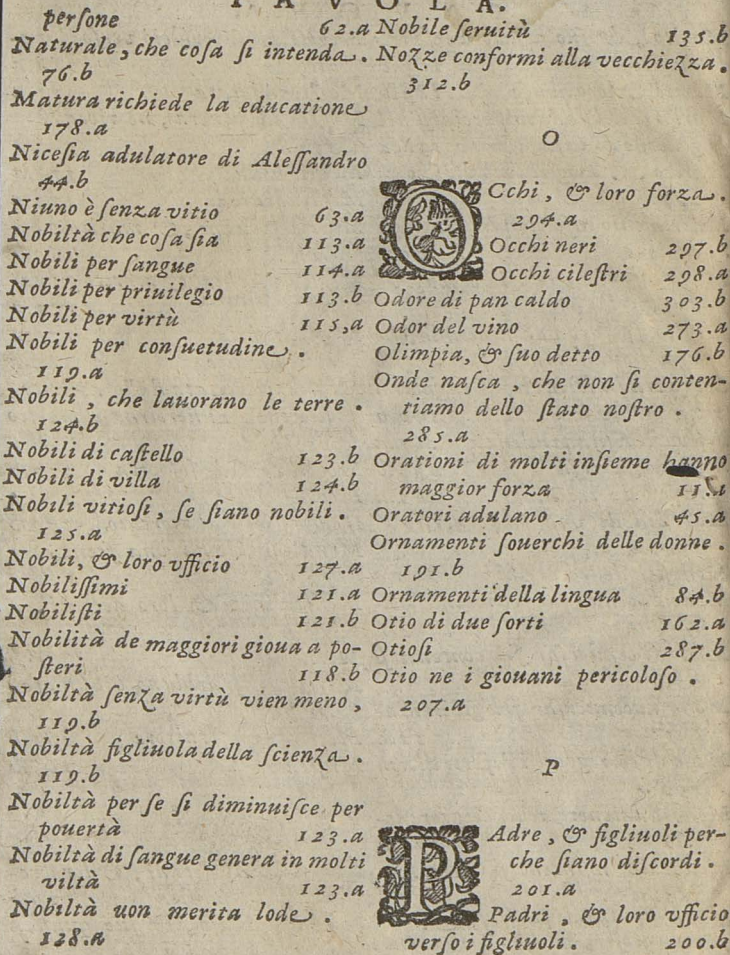 TAVOLA.
persone 62.a
Naturale, che cosa si intenda.
76.b
Matura richiede la educatione
178.a
Nicesia adulatore di Alessandro
44.b
Niuno è senza vitio 63.a
Nobiltà che cosa sia 113.a
Nobili per sangue 114.a
Nobili per priuilegio 113.b
Nobili per virtù 115,a
Nobili per consuetudine.
119.a
Nobili, che lauorano le terre.
124.b
Nobili di castello 123.b
Nobili di villa 124.b
Nobili vitiosi, se siano nobili.
125.a
Nobili, & loro vfficio 127.a
Nobilissimi 121.a
Nobilisti 121.b
Nobilità de maggiori gioua a po-
steri 118.b
Nobiltà senza virtù vien meno,
119.b
Nobiltà figliuola della scienza.
119.b
Nobiltà per se si diminuisce per
pouertà 123.a
Nobiltà di sangue genera in molti
viltà 123.a
Nobiltà uon merita lode.
128.a
Nobile seruitù 135.b
Nozze conformi alla vecchiezza.
312.b
O
OCchi, & loro forza.
294.a
Occhi neri 297.b
Occhi cilestri 298.a
Odore di pan caldo 303.b
Odor del vino 273.a
Olimpia, & suo detto 176.b
Onde nasca, che non si conten-
tiamo dello stato nostro.
285.a
Orationi di molti insieme hanno
maggior forza 11.a
Oratori adulano. 45.a
Ornamenti souerchi delle donne.
191.b
Ornamenti della lingua 84.b
Otio di due sorti 162.a
Otiosi 287.b
Otio ne i giouani pericoloso.
207.a
P
PAdre, & figliuoli per-
che siano discordi.
201.a
Padri, & loro vfficio
verso i figliuoli. 200.b